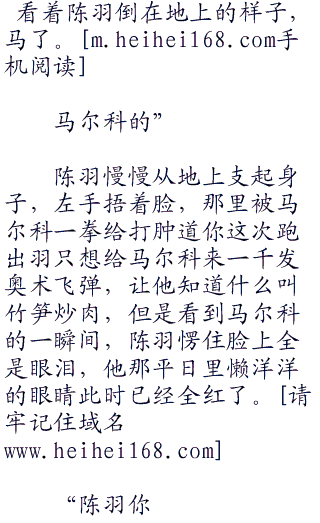 看着陈羽倒在地上的样子,
马了。[m.heihei168.com手
机阅读]
马尔科的”
陈羽慢慢从地上支起身
子, 左手捂着脸, 那里被马
尔科一拳给打肿道你这次跑
出羽只想给马尔科来一千发
奥术飞弹, 让他知道什么叫
竹笋炒肉, 但是看到马尔科
的一瞬间, 陈羽愣住脸上全
是眼泪, 他那平日里懒洋洋
的眼睛此时已经全红了。[请
牢记住域名
www.heihei168.com]
“陈羽你